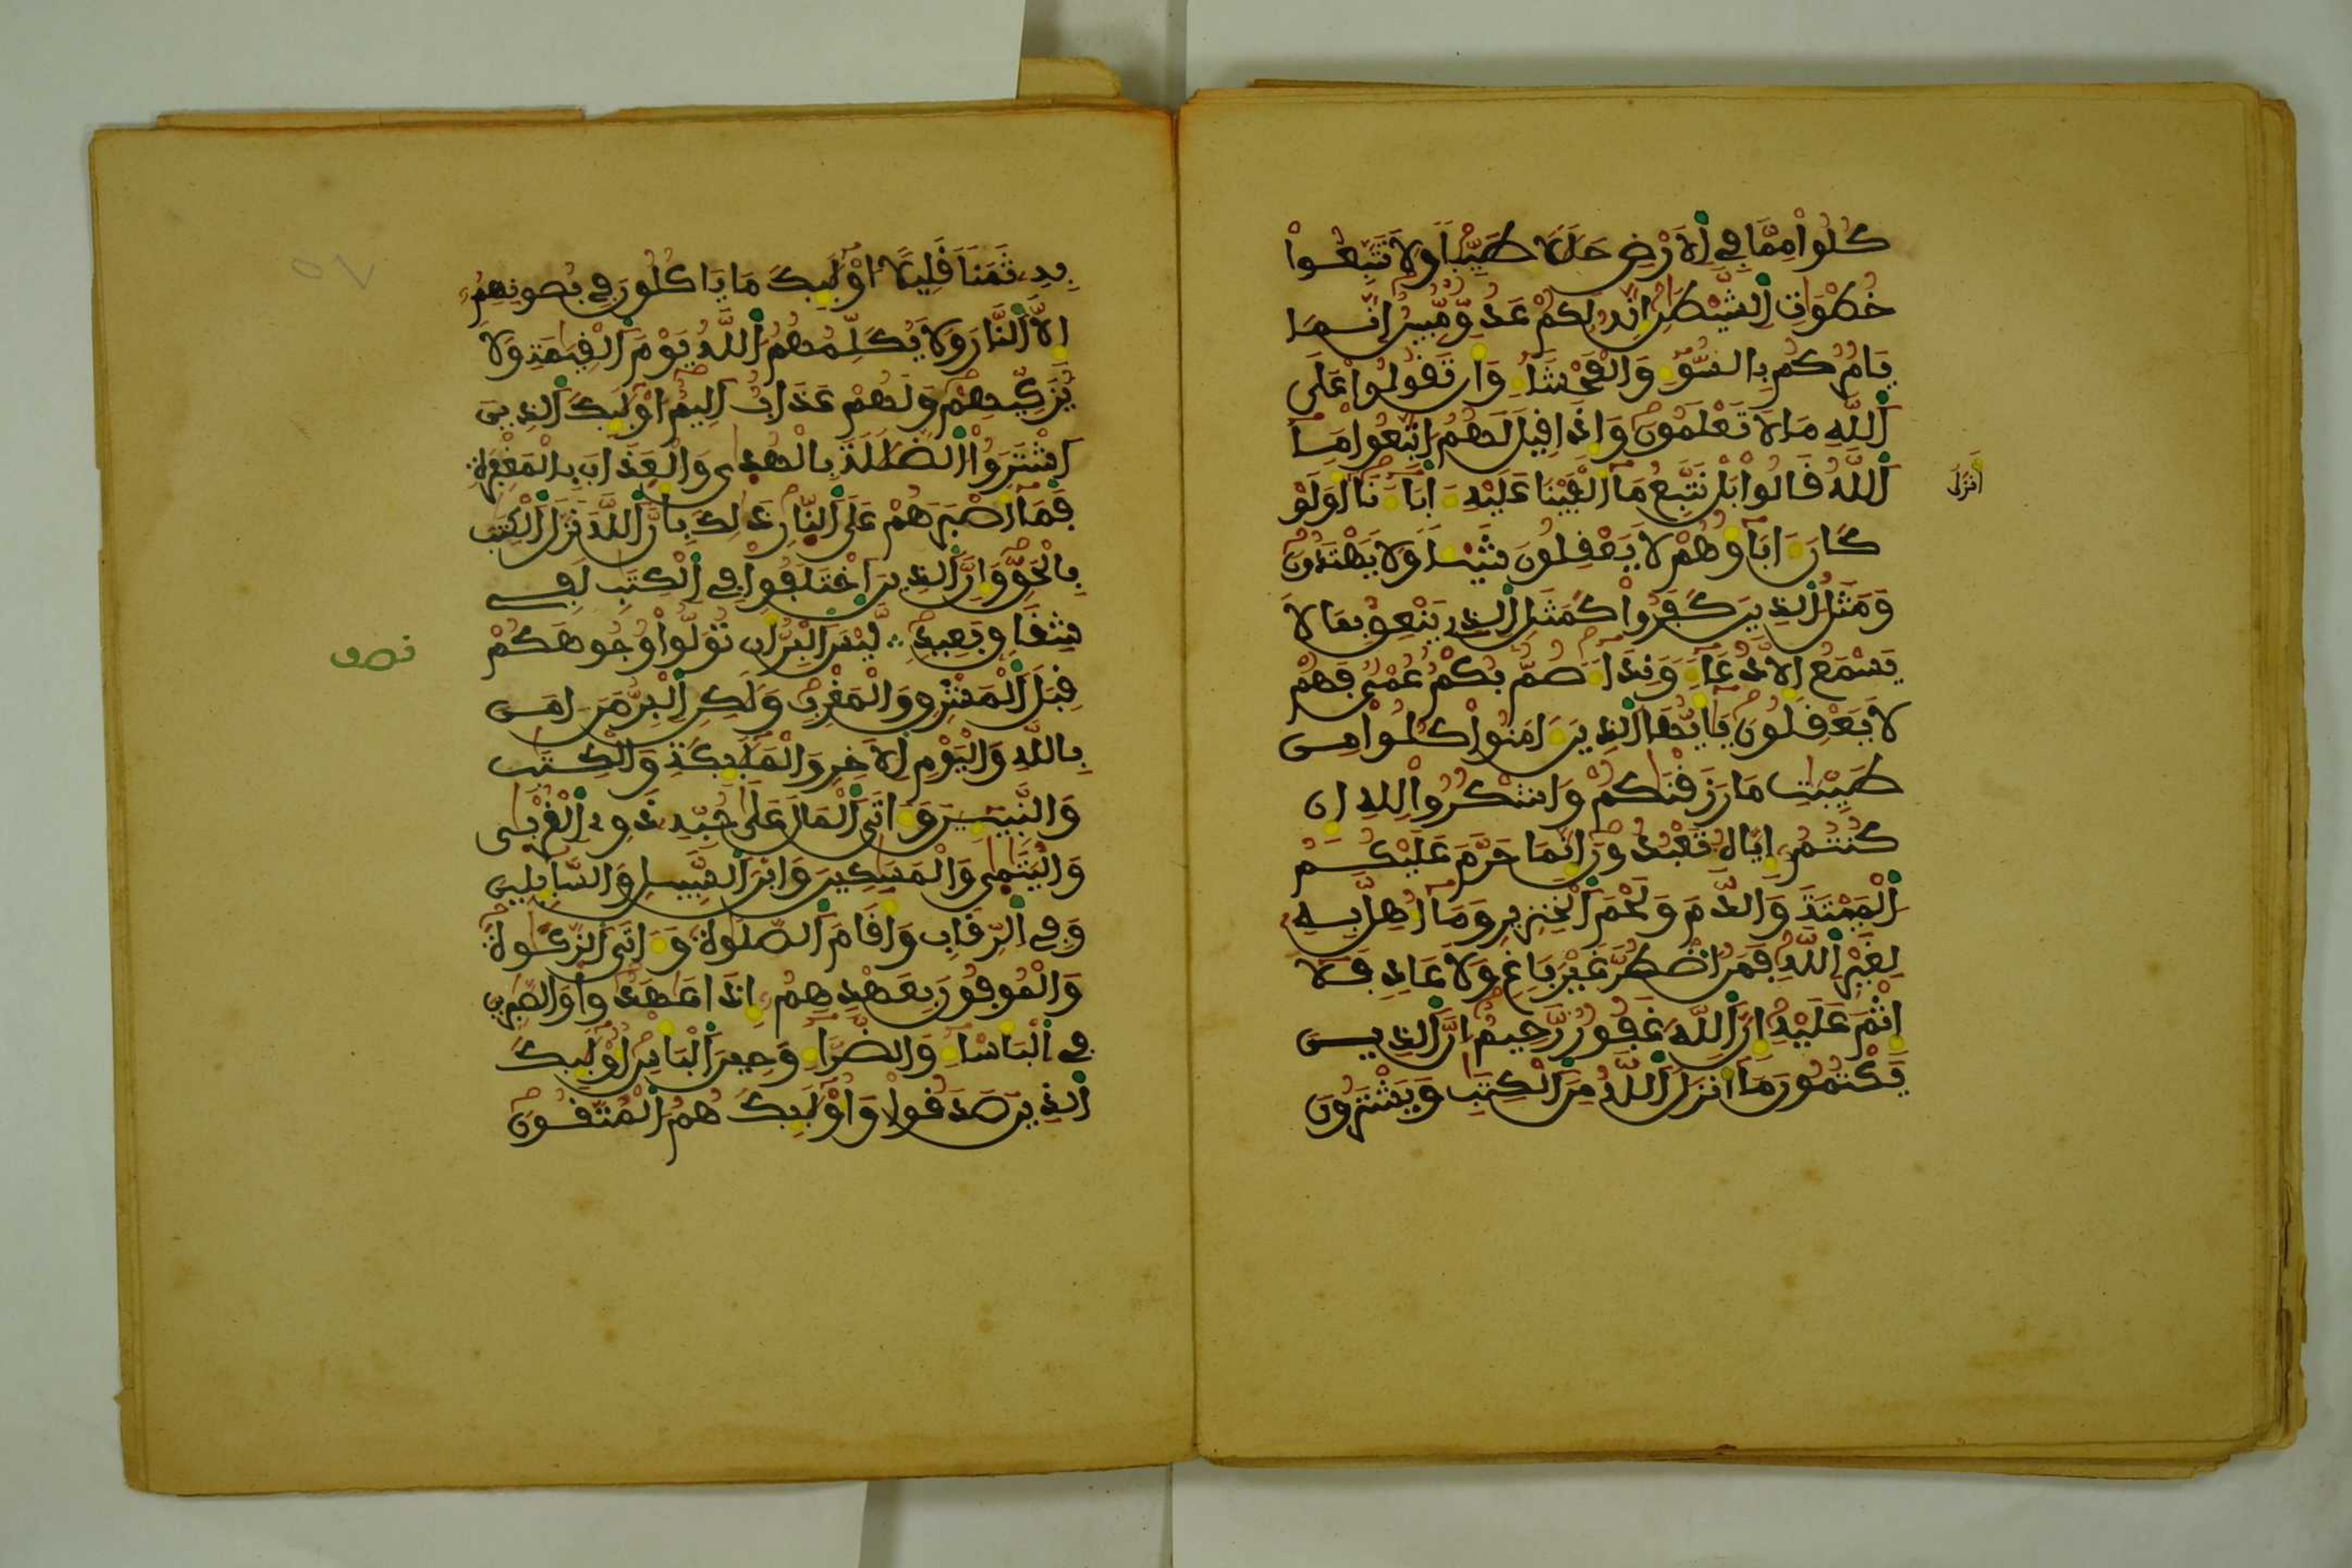 كُلُواْ مِمَّا فِي اِ۬لَارْضِ حَلَٰلاٗ طَيِّباٗ وَلَا تَتَّبِعُواْ
خُطْوَٰتِ اِ۬لشَّيْطَٰنِ إِنَّهُۥ لَكُمْ عَدُوّٞ مُّبِينٌ اِنَّمَا
يَامُرُكُم بِالسُّوٓءِ وَالْفَحْشَآءِ وَأَن تَقُولُواْ عَلَى
اَ۬للَّهِ مَا لَا تَعْلَمُونَ وَإِذَا قِيلَ لَهُمُ اتَّبِعُواْ مَآ
اَ۬للَّهُ قَالُواْ بَلْ نَتَّبِعُ مَآ أَلْفَيْنَا عَلَيْهِ ءَابَآءَنَآ أَوَلَوْ
أَنزَلَ
كَانَ ءَابَآؤُهُمْ لَا يَعْقِلُونَ شَيْـٔاٗ وَلَا يَهْتَدُونَ
وَمَثَلُ اُ۬لذِينَ كَفَرُواْ كَمَثَلِ اِ۬لذِي يَنْعِقُ بِمَا لَا
يَسْمَعُ إِلَّا دُعَآءٗ وَنِدَآءٗ صُمّٞ بُكْمٌ عُمْيٞ فَهُمْ
لَا يَعْقِلُونَ يَٰٓأَيُّهَا اَ۬لذِينَ ءَامَنُواْ كُلُواْ مِن
طَيِّبَٰتِ مَا رَزَقْنَٰكُمْ وَاشْكُرُواْ لِلهِ إِن
كُنتُمُۥٓ إِيَّاهُ تَعْبُدُونَ إِنَّمَا حَرَّمَ عَلَيْكُمُ
اُ۬لْمَيْتَةَ وَالدَّمَ وَلَحْمَ اَ۬لْخِنزِيرِ وَمَآ أُهِلَّ بِهِۦ
لِغَيْرِ اِ۬للَّهِ فَمَنُ اضْطُرَّ غَيْرَ بَاغٖ وَلَا عَادٖ فَلَآ
إِثْمَ عَلَيْهِ إِنَّ اَ۬للَّهَ غَفُورٞ رَّحِيمٌ اِنَّ اَ۬لذِينَ
يَكْتُمُونَ مَآ أَنزَلَ اَ۬للَّهُ مِنَ اَ۬لْكِتَٰبِ وَيَشْتَرُونَ
بِهِۦ ثَمَناٗ قَلِيلاً اُوْلَٰٓئِكَ مَا يَاكُلُونَ فِي بُطُونِهِمُۥٓ
إِلَّا اَ۬لنَّارَ وَلَا يُكَلِّمُهُمُ اُ۬للَّهُ يَوْمَ اَ۬لْقِيَٰمَةِ وَلَا
يُزَكِّيهِمْ وَلَهُمْ عَذَابٌ اَلِيمٌ اُوْلَٰٓئِكَ اَ۬لذِينَ
اَ۪شْتَرَوُاْ اُ۬لضَّلَٰلَةَ بِالْهُدَىٰ وَالْعَذَابَ بِالْمَغْفِرَةِ
فَمَآ أَصْبَرَهُمْ عَلَى اَ۬لنّ۪ارِ ذَٰلِكَ بِأَنَّ اَ۬للَّهَ نَزَّلَ اَ۬لْكِتَٰبَ
بِالْحَقِّ وَإِنَّ اَ۬لذِينَ اَ۪خْتَلَفُواْ فِي اِ۬لْكِتَٰبِ لَفِي
شِقَاقِۢ بَعِيدٖ لَّيْسَ اَ۬لْبِرُّ أَن تُوَلُّواْ وُجُوهَكُمْ
نصف
قِبَلَ اَ۬لْمَشْرِقِ وَالْمَغْرِبِ وَلَٰكِنِ اِ۬لْبِرُّ مَنَ ءَامَنَ
بِاللَّهِ وَالْيَوْمِ اِ۬لَاخِرِ وَالْمَلَٰٓئِكَةِ وَالْكِتَٰبِ
وَالنَّبِيٓـِٕينَ وَءَاتَى اَ۬لْمَالَ عَلَىٰ حُبِّهِۦ ذَوِي اِ۬لْقُرْبَىٰ
وَالْيَتَٰمَىٰ وَالْمَسَٰكِينَ وَابْنَ اَ۬لسَّبِيلِ وَالسَّآئِلِينَ
وَفِي اِ۬لرِّقَابِ وَأَقَامَ اَ۬لصَّلَوٰةَ وَءَاتَى اَ۬لزَّكَوٰةَ
وَالْمُوفُونَ بِعَهْدِهِمُۥٓ إِذَا عَٰهَدُواْ وَالصَّٰبِرِينَ
فِي اِ۬لْبَأْسَآءِ وَالضَّرَّآءِ وَحِينَ اَ۬لْبَأْسِ أُوْلَٰٓئِكَ
اَ۬لذِينَ صَدَقُواْ وَأُوْلَٰٓئِكَ هُمُ اُ۬لْمُتَّقُونَ